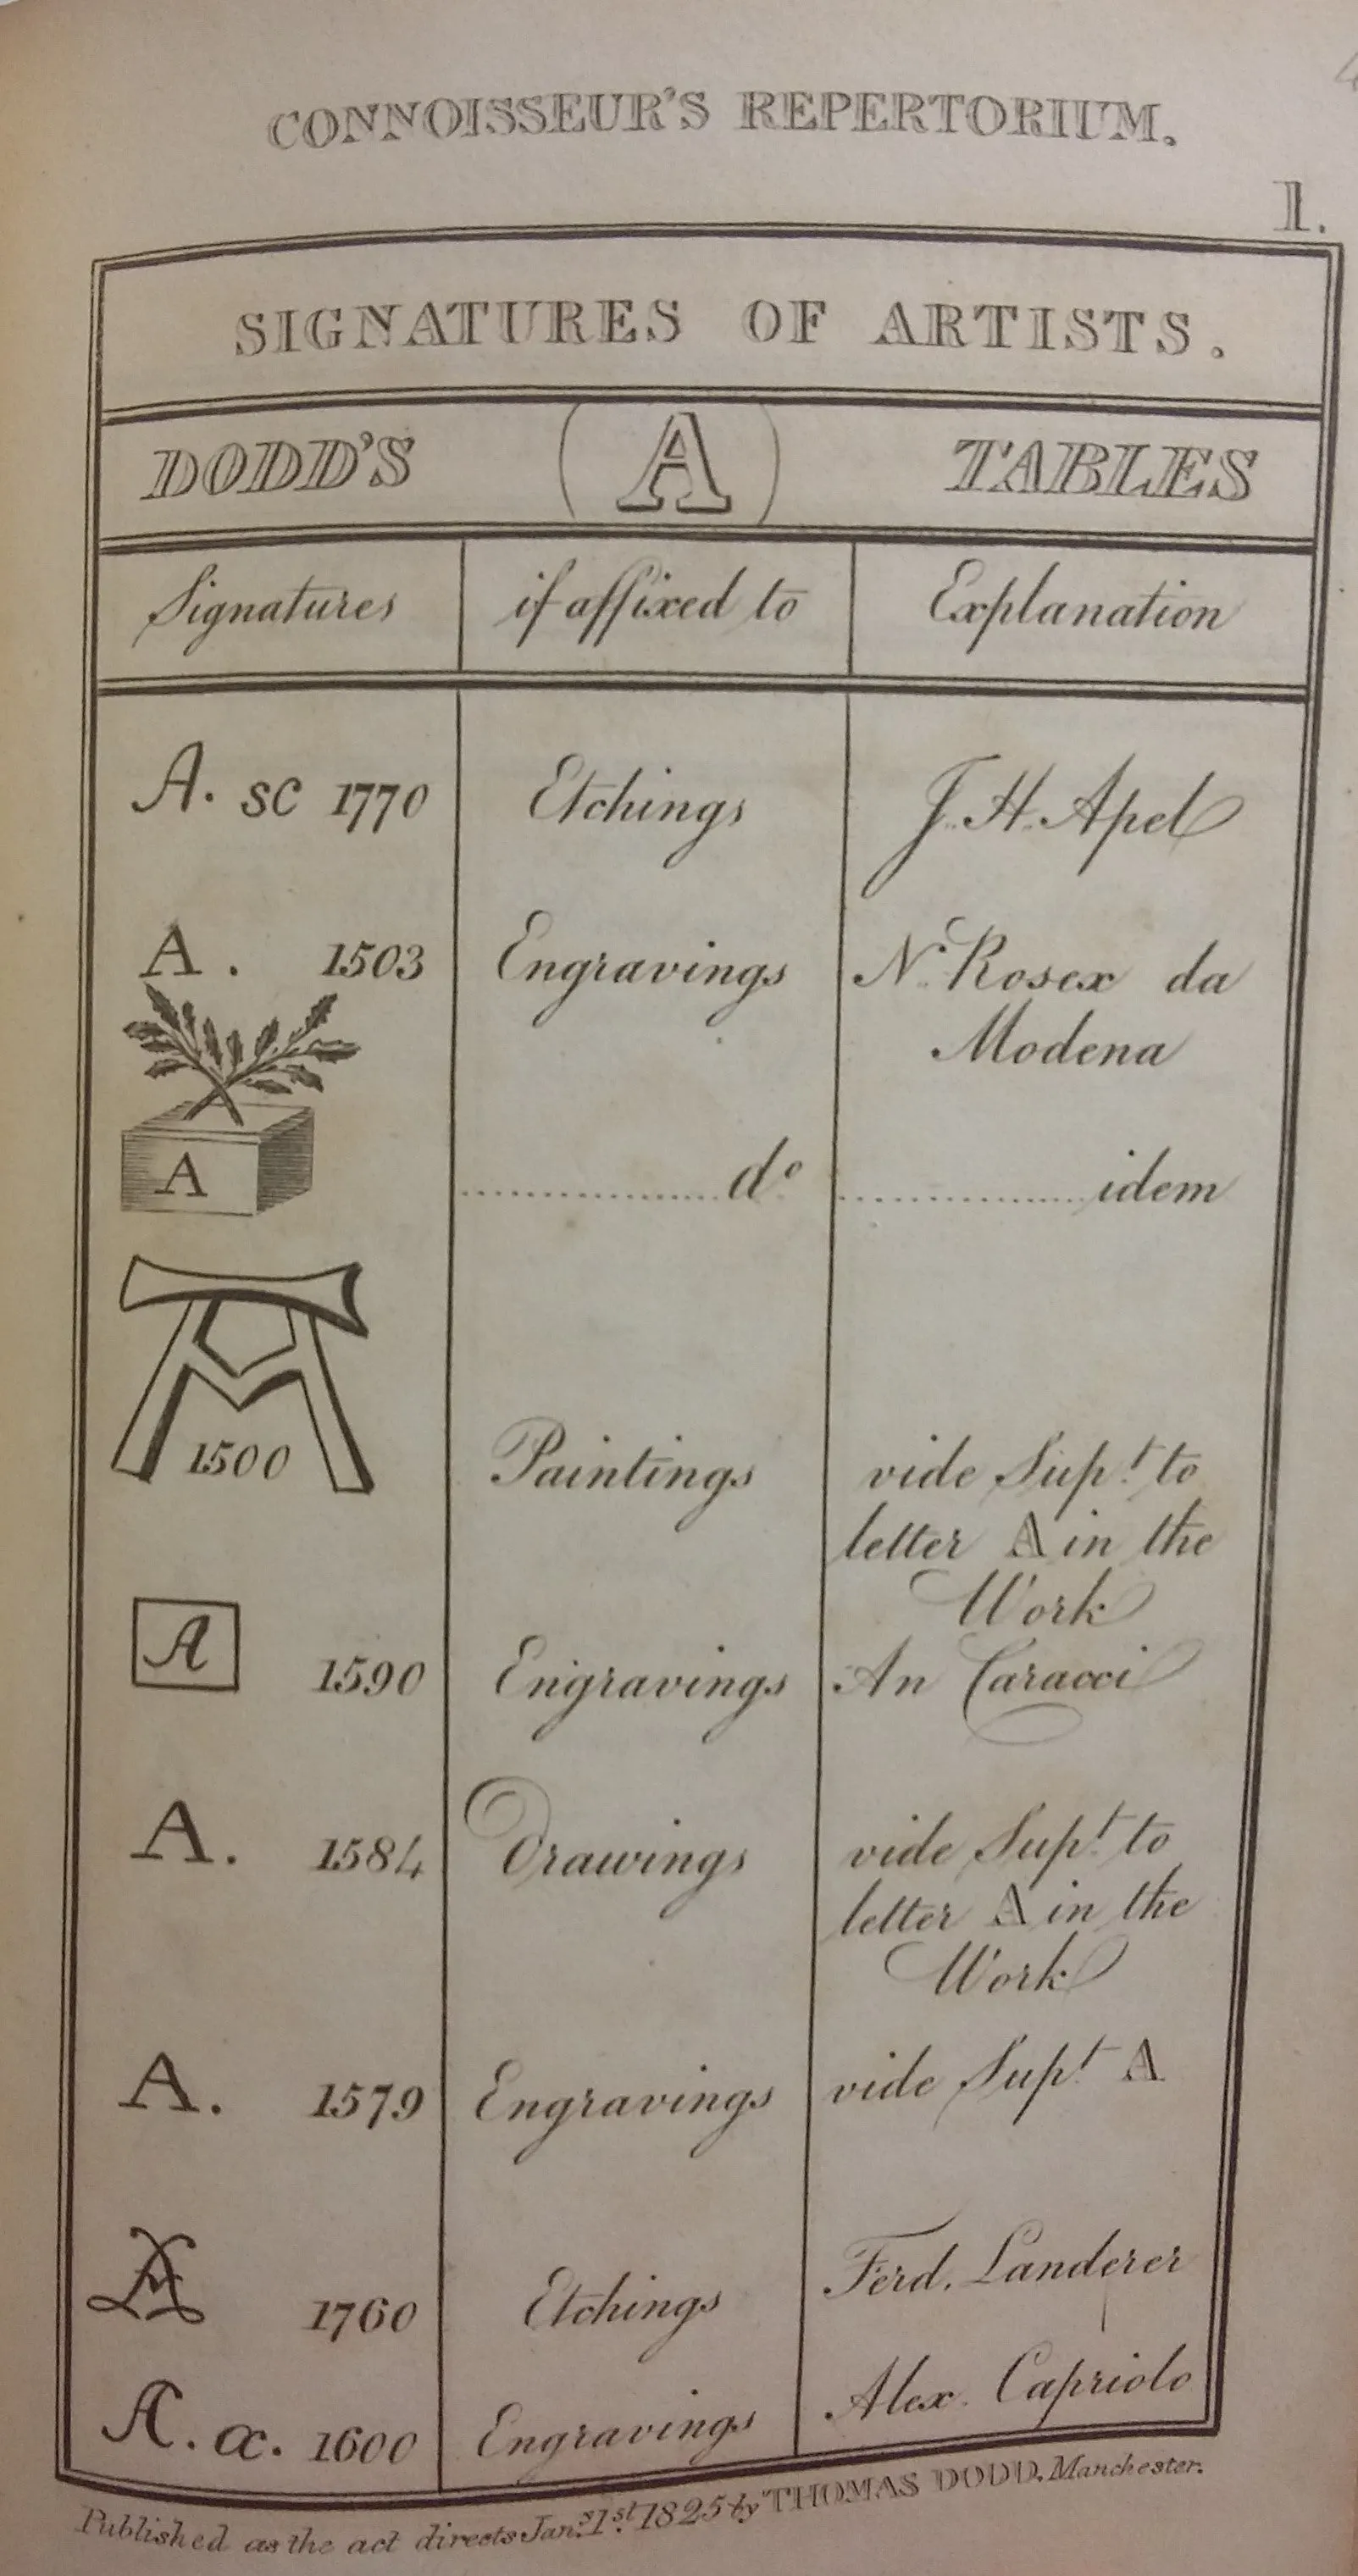 CONNOISSEUR'S REPERTORIUM.
1.
SIGNATURES OF ARTISTS.
DODD'S (A) TABLES
Signatures if affixed to Explanation
A. sc 1770 Etchings J. H. Apel
A. 1503 Engravings N. Rosex da
Modena
A do idem
1500 Paintings vide Supt. to
letter A in the
Work
A 1590 Engravings An Caracci
A. 1584 Drawings vide Supt. to
letter A in the
Work
A. 1579 Engravings vide Supt. A
1760 Etchings Ferd. Landerer
A. α. 1600 Engravings Alex. Capriolo
Published as the act directs Jany. 1st. 1825 by THOMAS DODD. Manchester.